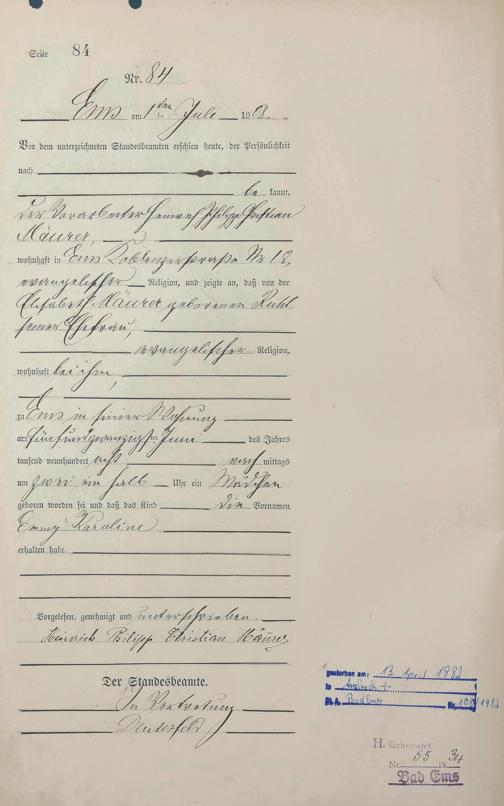 Seite 84
Nr. 84
Ems am 1ten Juli 1908.
Vor dem unterzeichneten Standesbeamten erschien heute, der Persönlichkeit
nach
be kannt,
der Vorarbeiter Heinrich Philipp Christian
Mäurer,
wohnhaft in Ems Koblenzerstraße Nr 18,
evangelischer Religion, und zeigte an, daß von der
Elisabeth Mäurer geborenen Ruhl
seiner Ehefrau,
evangelischer Religion,
wohnhaft bei ihm,
zu Ems in seiner Wohnung
am fünfundzwanzigsten Juni des Jahres
tausend neunhundert acht nach mittags
um zwei ein halb Uhr ein Mädchen
geboren worden sei und daß das Kind die Vornamen
Emmy Karoline
erhalten habe.
Vorgelesen, genehmigt und unterschrieben.
Heinrich Philipp Christian Mäurer
Der Standesbeamte.
In Vertretung
gestorben am: 13. April 1982
in
St. A. Bad Ems Nr. 1982
H. Geheiratet
Nr. 55 1934
Bad Ems